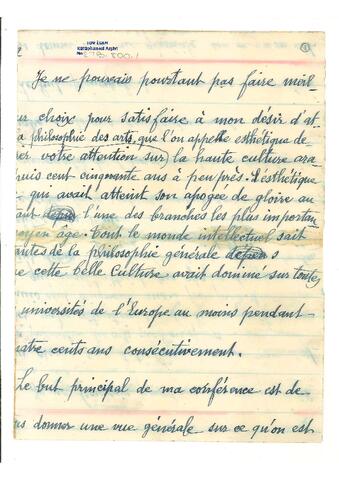 ①
TDV İSAM
Kütüphanesi Arşivi
No
Je ne pouvais pourtant pas faire meil-
choix pour satisfaire à mon désir d'at-
a philosophie des arts, que l'on appelle esthétique de
rer votre attention sur la haute culture ara
huis cent cinquante ans à peu près. L'esthétique
- qui avait atteint son apogée de gloire au
l'une des branches les plus importan
oyen âge. Tout le monde intellectuel sait
ntes de la philosophie générale
e cette belle culture avait dominé sur toutes
universités de l'Europe au moins pendant
uatre cents ans consécutivement.
Le but principal de ma conférence est de
us donner une vue générale sur ce qu'on est